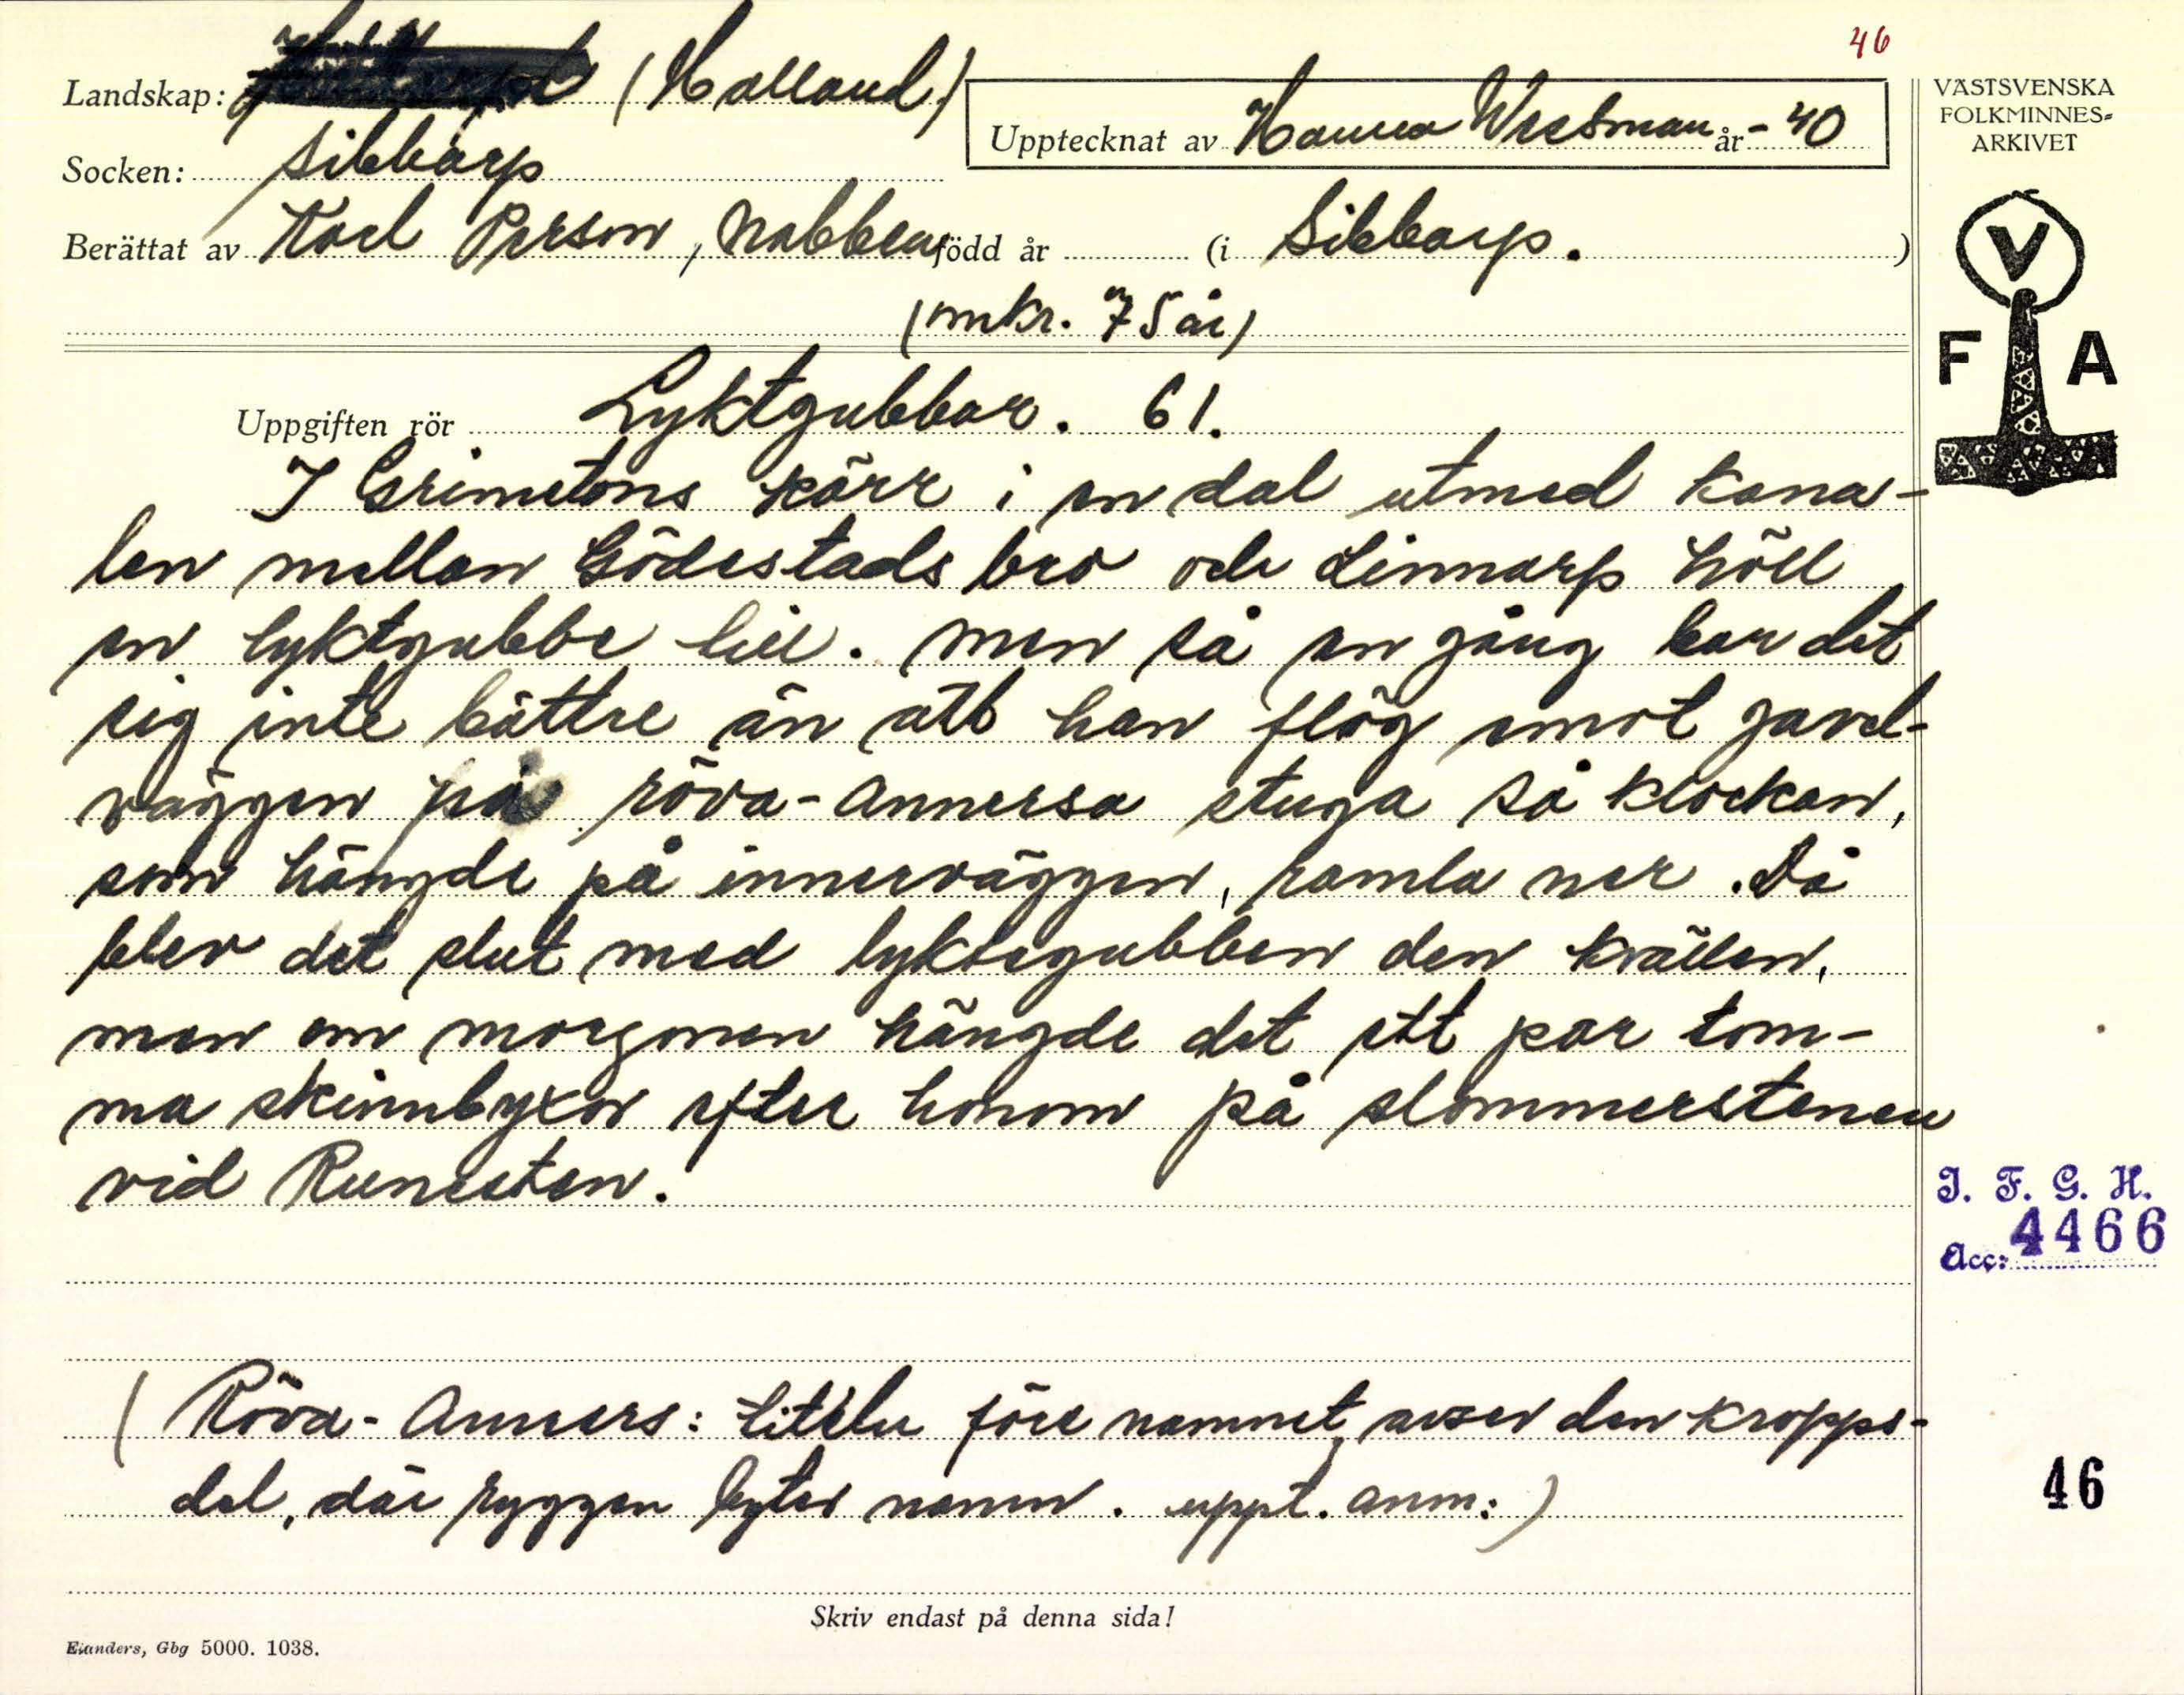 46
Landskap: (Halland)
Upptecknat av Hanna Westman år -40
VÄSTSVENSKA
FOLKMINNES-
ARKIVET
Socken: Sibbarp
Berättat av Karl Person, Nabben född år (i Sibbarp. )
(omkr. 75 år)
V
F A
Uppgiften rör Lyktgubbar. 61.
I Grimetons kärr i en dal utmed kana-
len mellan Gödestads bro och Linnarp höll
en lyktgubbe till. Men så en gång bar det
sig inte bättre än att han flög emot gavel-
väggen på röva-Annersa stuga så klockan,
som hängde på innerväggen, ramla ner. Då
blev det slut med lyktegubben den kvällen,
men om morgonen hängde det ett par tom-
ma skinnbyxor efter honom på slommerstenen
vid Runesten.
I. F. G. H.
Acc: 4466
(Röva-Anners: titeln före namnet, avser den kropps-
del, där ryggen byter namn. uppt. anm:)
46
Skriv endast på denna sida!
Elanders, Gbg 5000. 1038.